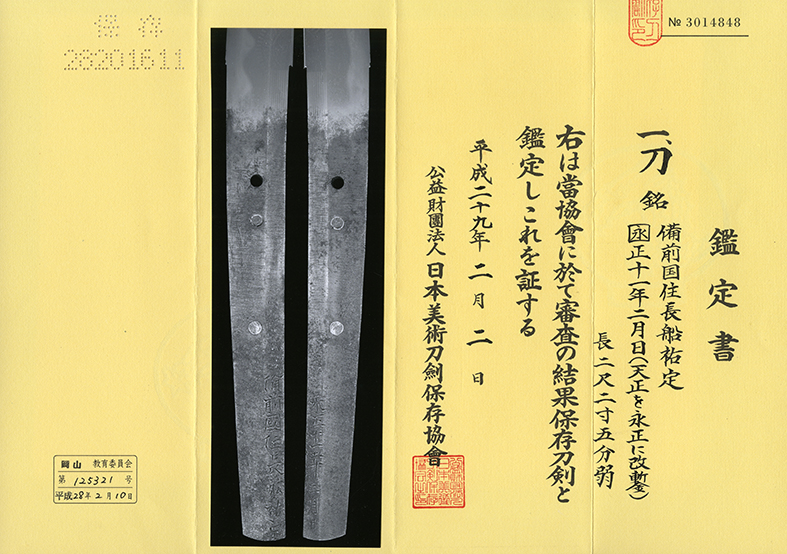 № 3014848
鑑定書
一、刀 銘 備前国住長船祐定
永正十一年二月日(天正を永正に改鏨)
長二尺二寸五分弱
右は當協會に於て審査の結果保存刀剣と
鑑定しこれを証する
平成二十九年二月二日
公益財團法人 日本美術刀劍保存協會
保存
28201611
岡山 教育委員会
第 125321 号
平成28年2月10日